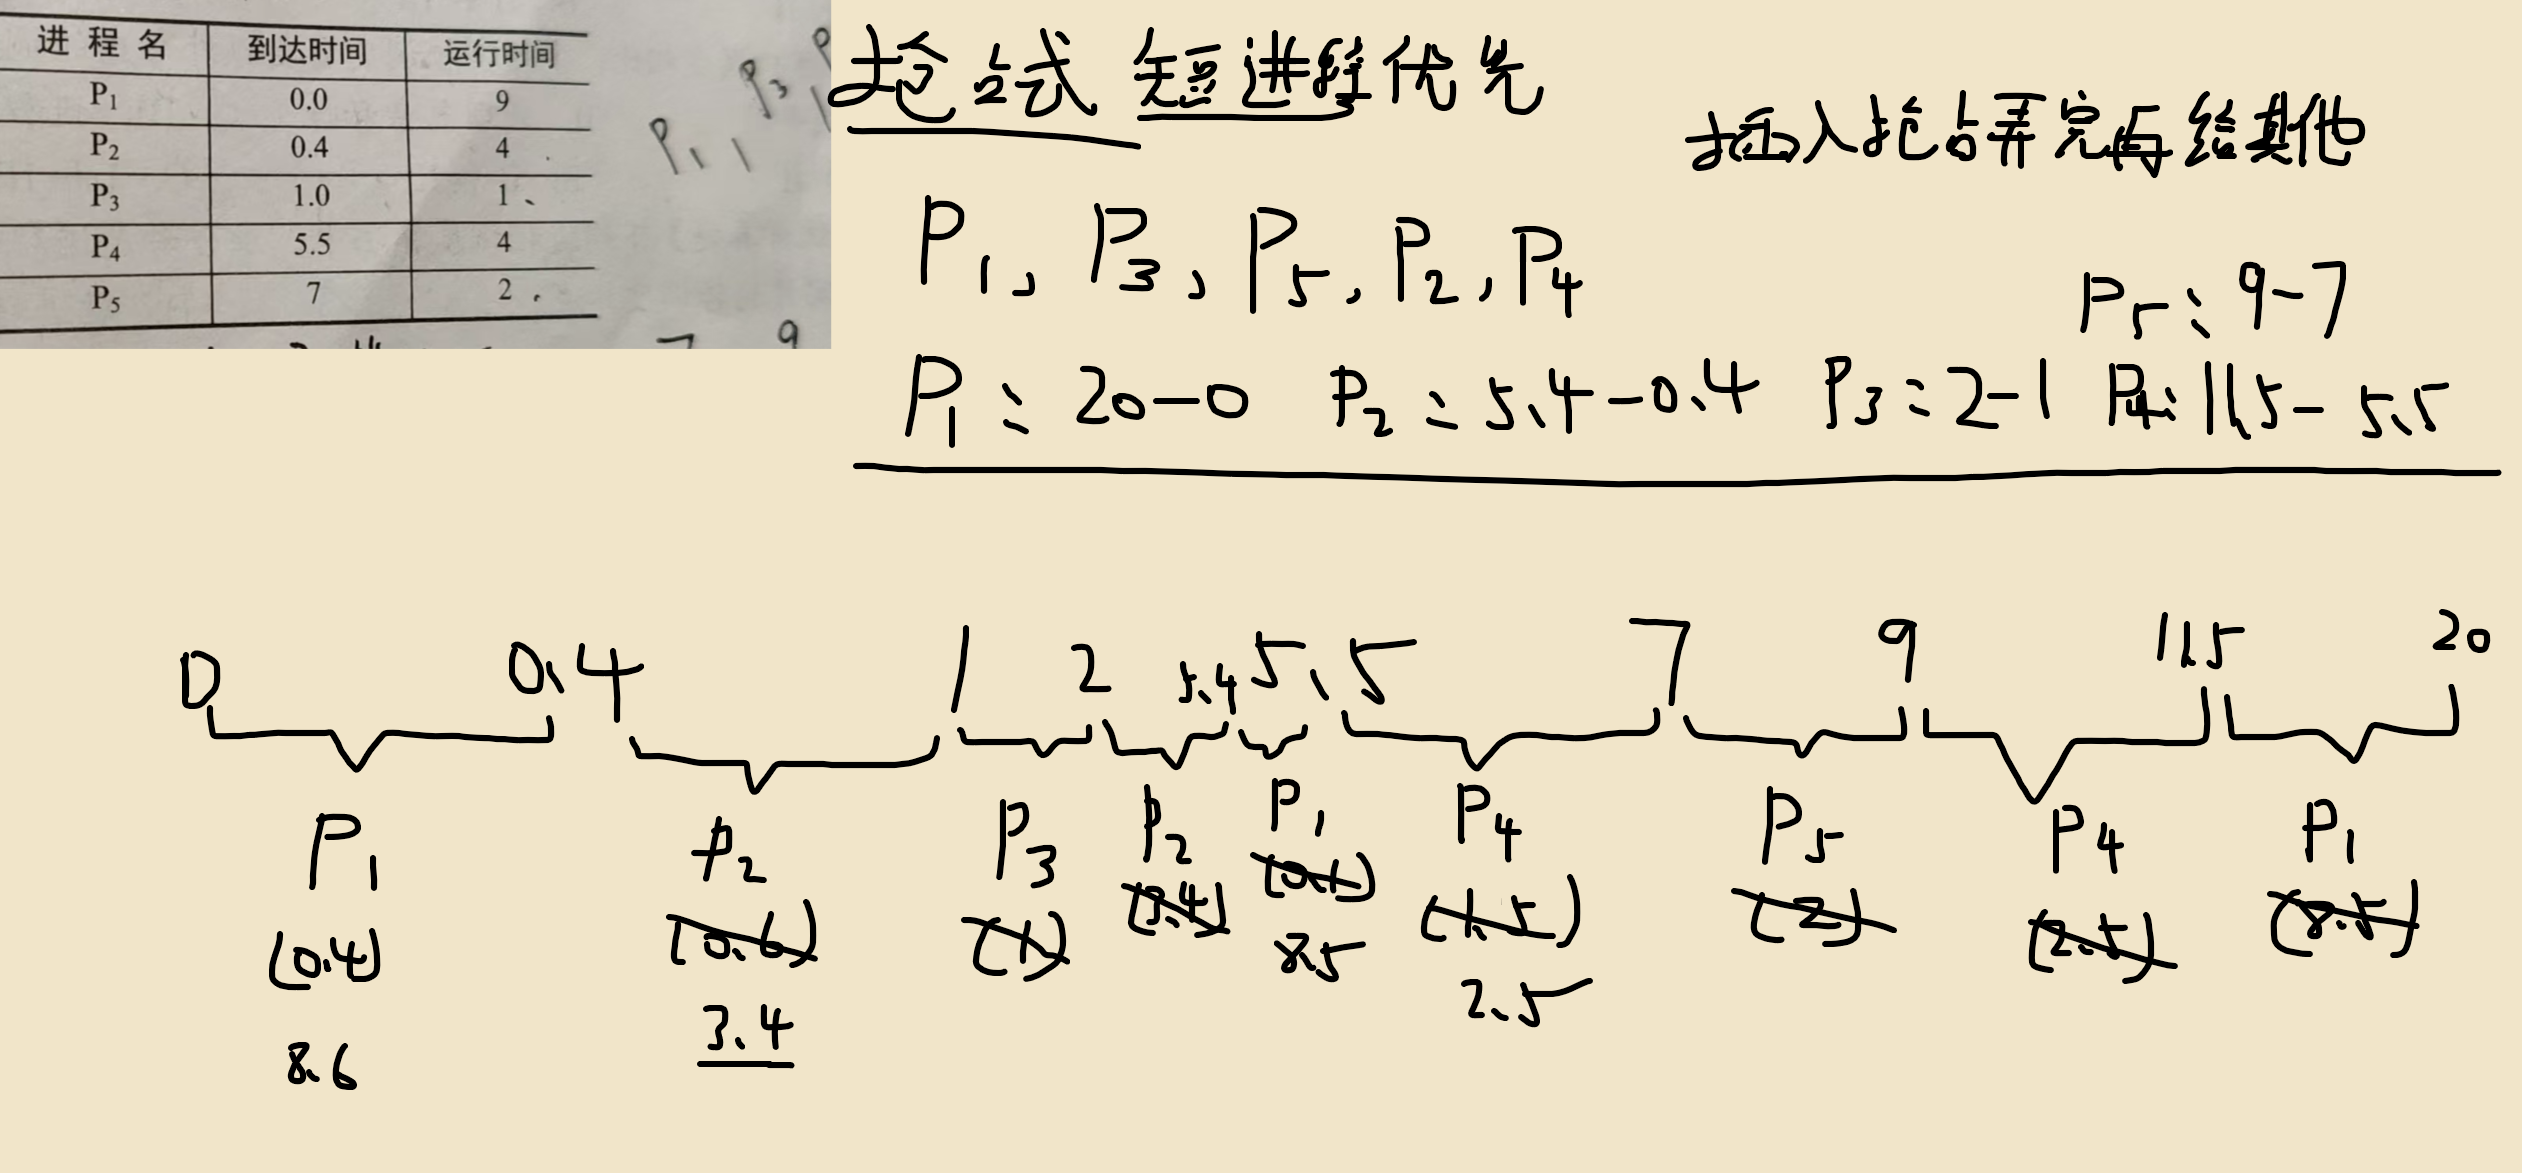 进程名 到达时间 运行时间
P1 0.0 9
P2 0.4 4
P3 1.0 1
P4 5.5 4
P5 7 2
P1, P3
7 9
抢占式 短进程优先
插入抢占弄完再给其他
P1, P3, P5, P2, P4
P5: 9-7
P1: 20-0 P2: 5.4-0.4 P3: 2-1 P4: 11.5-5.5
0 0.4 1 2 5.4 5.5 7 9 11.5 20
P1 P2 P3 P2 P1 P4 P5 P4 P1
(0.4) (0.6) (1) (3.4) (0.1) (1.5) (2) (2.5) (8.5)
8.6 3.4 8.5 2.5